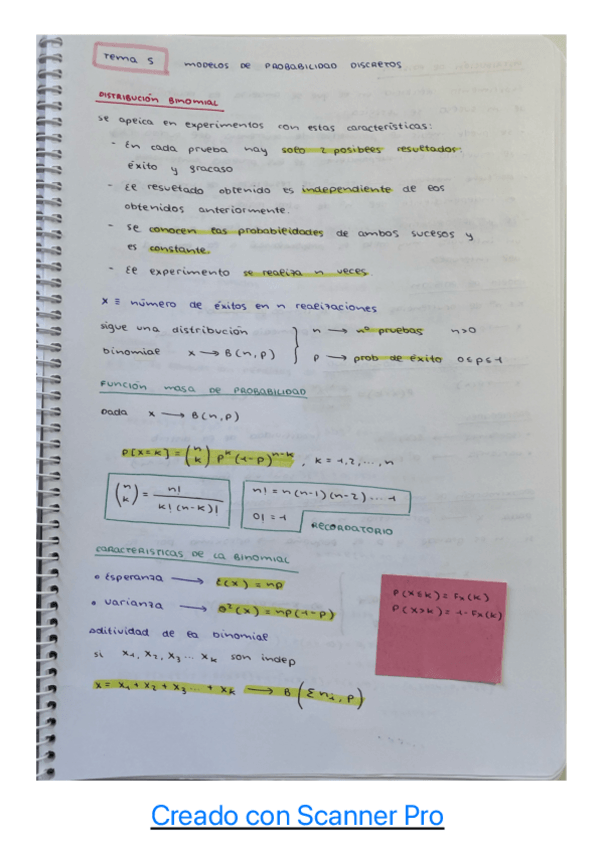 Tema 5 MODELOS DE PROBABILIDAD DISCRETOS
DISTRIBUCIÓN BINOMIAL
se aplica en experimentos con estas características:
- En cada prueba hay solo 2 posibles resultados:
éxito y fracaso
- El resultado obtenido es independiente de los
obtenidos anteriormente.
- se conocen las probabilidades de ambos sucesos y
es constante.
- El experimento se realiza n veces
x ≡ número de éxitos en n realizaciones
sigue una distribución
binomial x → B(n,p)
n → nº pruebas n>0
p → prob de éxito 0≤p≤1
FUNCIÓN MASA DE PROBABILIDAD
Dada x → B(n,p)
P[X=K] = (n k) p^k (1-p)^n-k , k = 1,2,...,n
(n k) = n! / k!(n-k)!
n! = n(n-1)(n-2)... 1
0! = 1
RECORDATORIO
CARACTERISTICAS DE LA BINOMIAL
• Esperanza → E(x) = np
• varianza → σ²(x) = np(1-p)
P(X≤K) = Fx(K)
P(X>K) = 1-Fx(K)
aditividad de la binomial
si x1, x2, x3 ... xk son indep
x = x1 + x2 + x3 ... + xk → B(Σni, p)
Creado con Scanner Pro